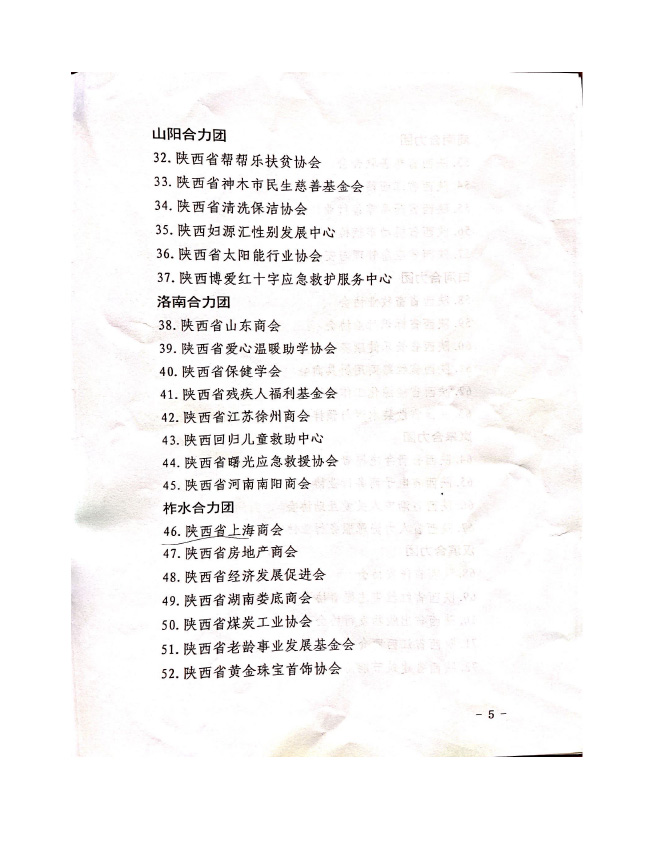 山阳合力团
32.陕西省帮帮乐扶贫协会
33.陕西省神木市民生慈善基金会
34.陕西省清洗保洁协会
35.陕西妇源汇性别发展中心
36.陕西省太阳能行业协会
37.陕西博爱红十字应急救护服务中心
洛南合力团
38.陕西省山东商会
39.陕西省爱心温暖助学协会
40.陕西省保健学会
41.陕西省残疾人福利基金会
42.陕西省江苏徐州商会
43.陕西回归儿童救助中心
44.陕西省曙光应急救援协会
45.陕西省河南南阳商会
柞水合力团
46.陕西省上海商会
47.陕西省房地产商会
48.陕西省经济发展促进会
49.陕西省湖南娄底商会
50.陕西省煤炭工业协会
51.陕西省老龄事业发展基金会
52.陕西省黄金珠宝首饰协会
- 5 -